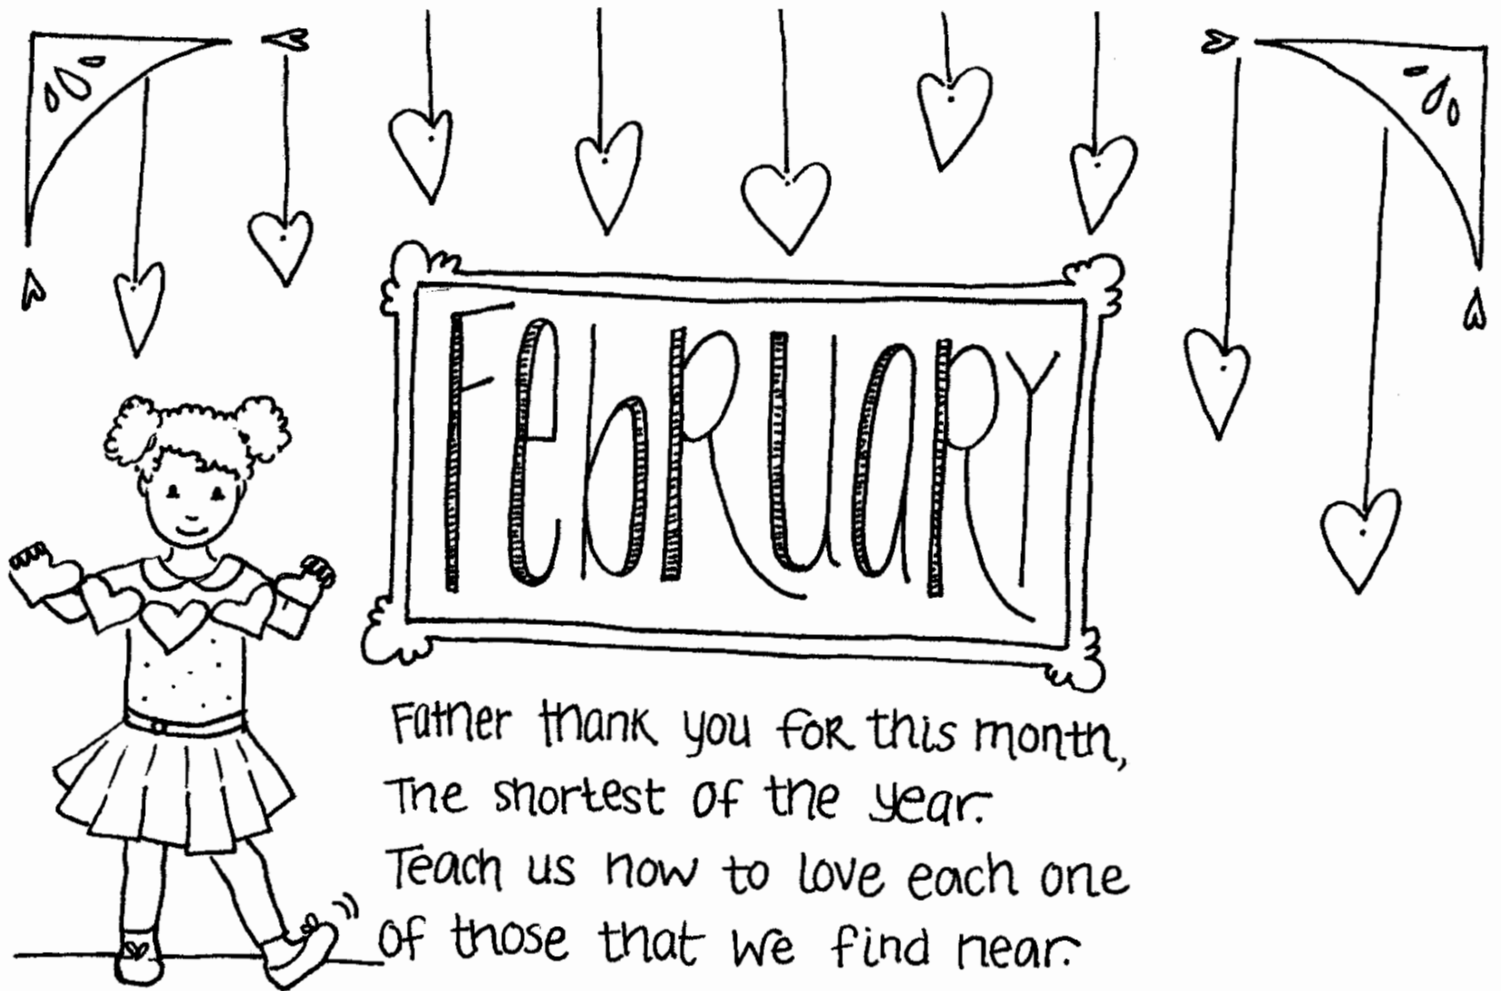 FebRuaRY
Father thank you foR this month,
The shortest of the year.
Teach us how to love each one
of those that we find near.